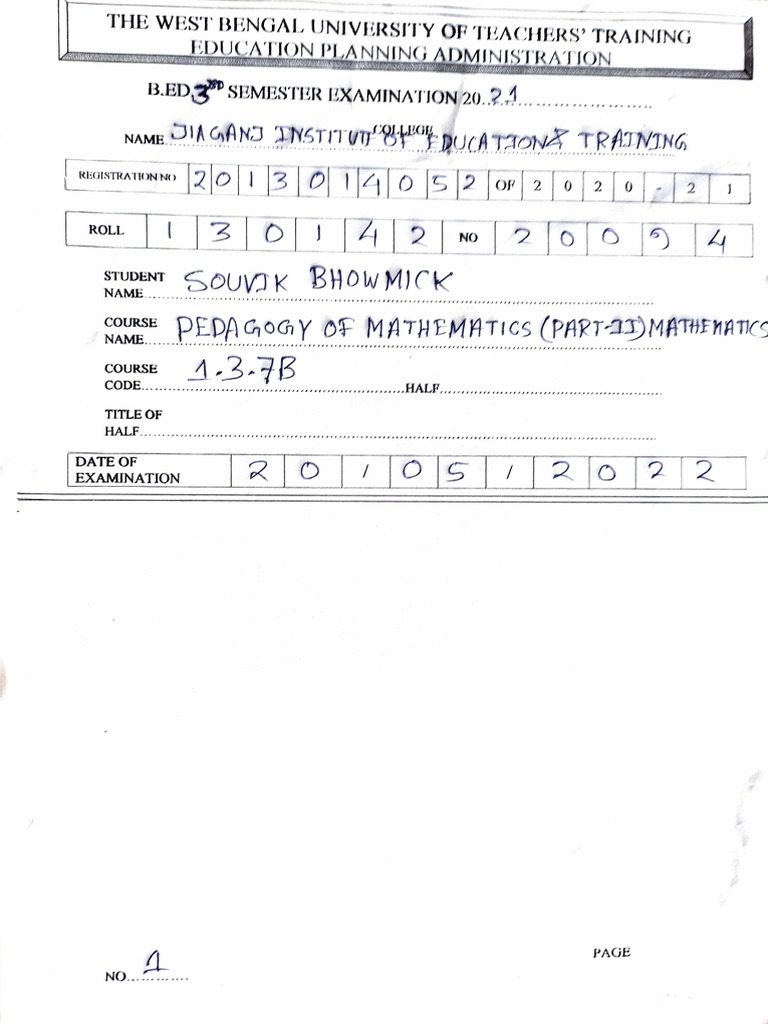 THE WEST BENGAL UNIVERSITY OF TEACHERS' TRAINING
EDUCATION PLANNING ADMINISTRATION
B.ED 3RD SEMESTER EXAMINATION 20 21
COLLEGE
NAME JIAGANJ INSTITUTE OF EDUCATION & TRAINING
REGISTRATION NO 2 0 1 3 0 1 4 0 5 2 OF 2 0 2 0 - 2 1
ROLL 1 3 0 1 4 2 NO 2 0 0 9 4
STUDENT
NAME SOUVIK BHOWMICK
COURSE
NAME PEDAGOGY OF MATHEMATICS (PART-II) MATHEMATICS
COURSE
CODE 1.3.7B HALF
TITLE OF
HALF
DATE OF
EXAMINATION 2 0 / 0 5 / 2 0 2 2
PAGE
NO. 1